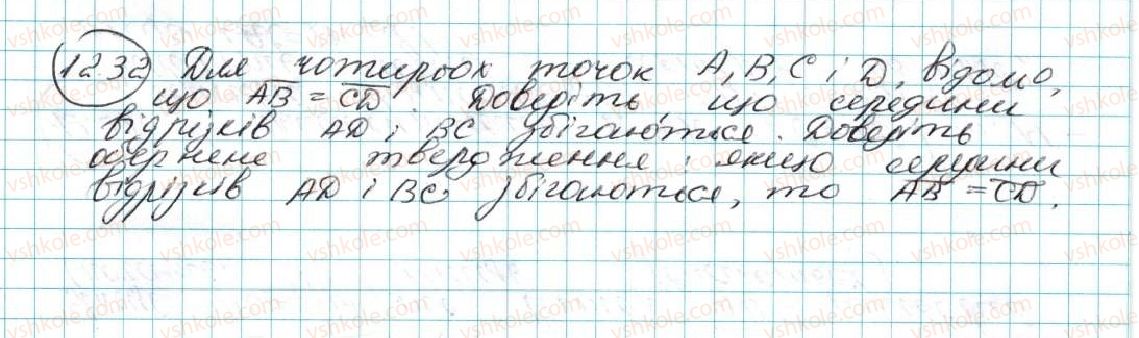 1232 Для чотирьох точок A, B, C і D, відомо,
що AB = CD. Доведіть, що середини
відрізків AD і BC збігаються. Доведіть
обернене твердження: якщо середини
відрізків AD і BC збігаються, то AB = CD.